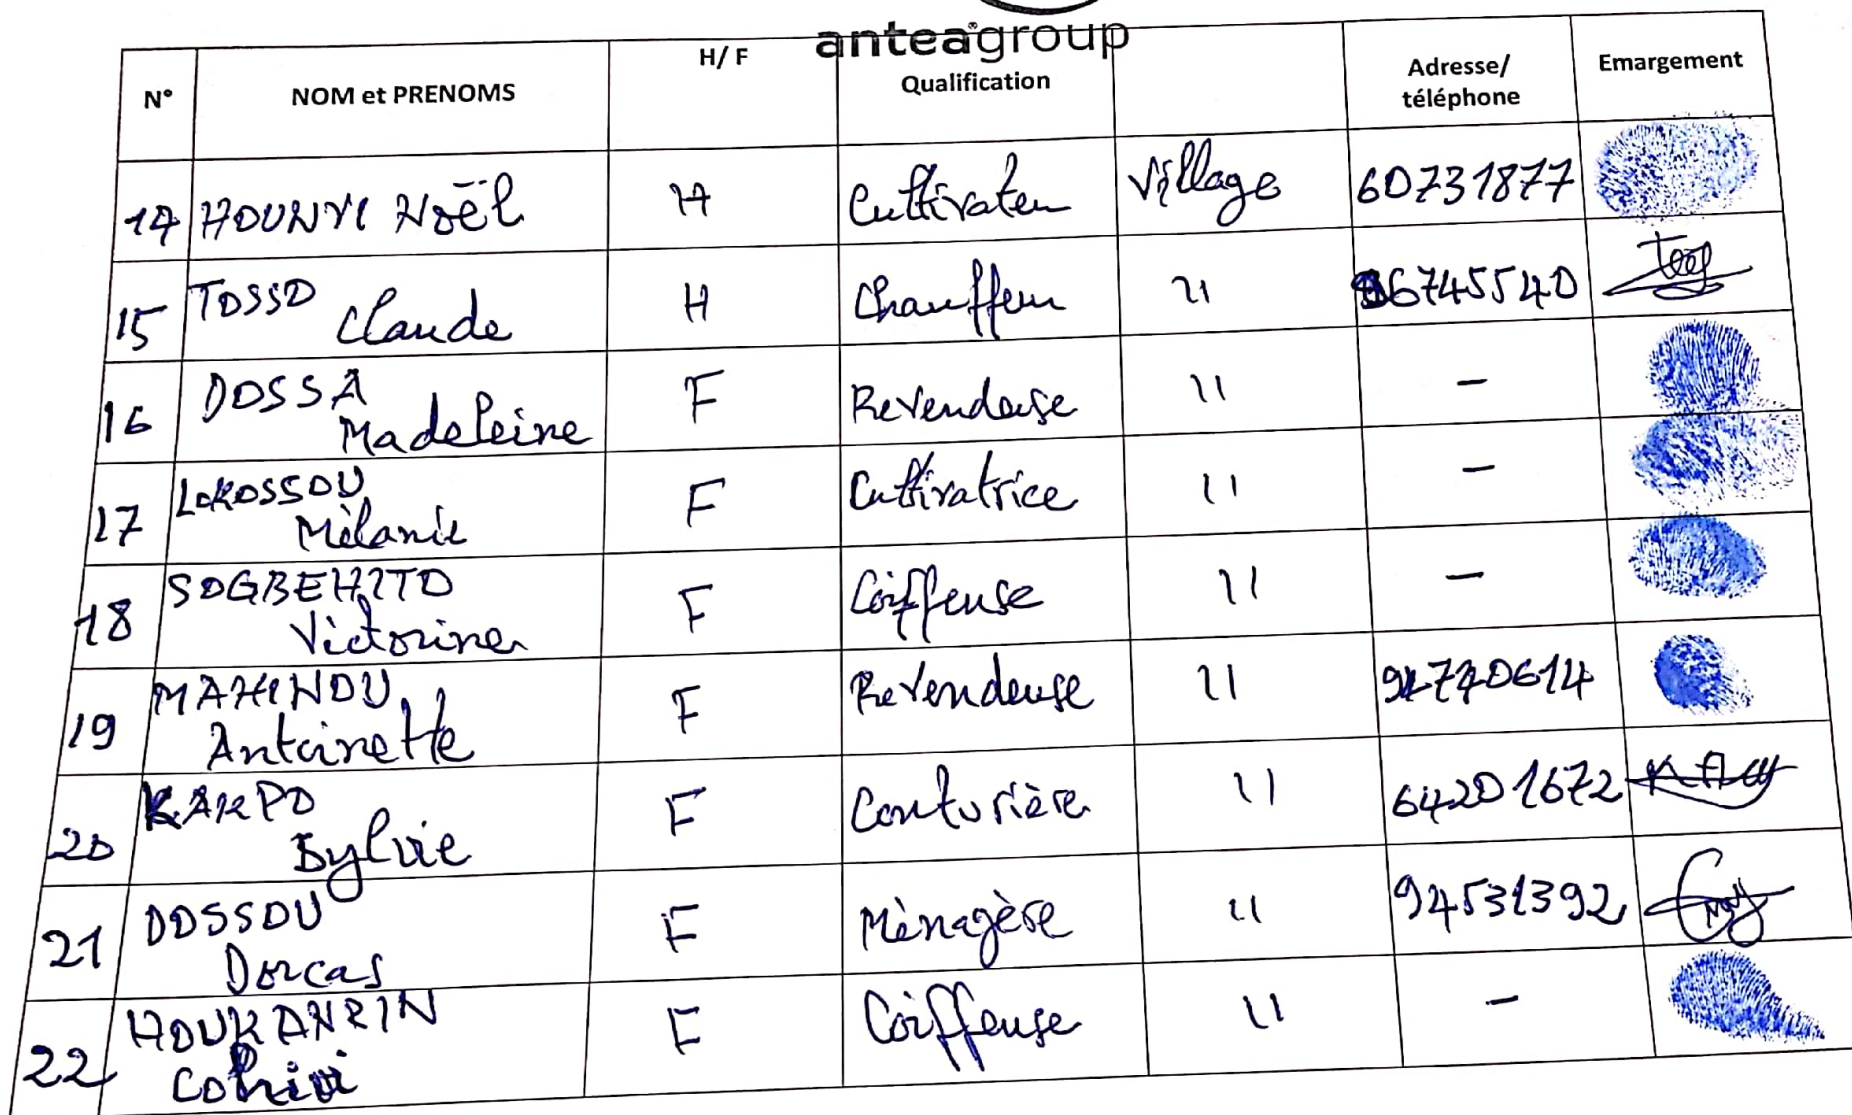 anteagroup
N° NOM et PRENOMS H/ F Qualification Adresse/ téléphone Emargement
14 HOUNYI Noël H Cultivateu Village 60731877
15 TOSSO Claude H Chauffeur 11 96745540
16 DOSSA Madeleine F Revendeuse 11 -
17 LOKOSSOU Mèlanie F Cultivatrice 11 -
18 SOGBEHITO Victorine F Coiffeuse 11 -
19 MAHINOU Antoinette F Revendeuse 11
20 KAKPO Sylvie F Couturière 11 64201672
21 DOSSOU Dorcas F Mènagère 11 94531392
22 HOUKANRIN F Coiffeuse 11 -